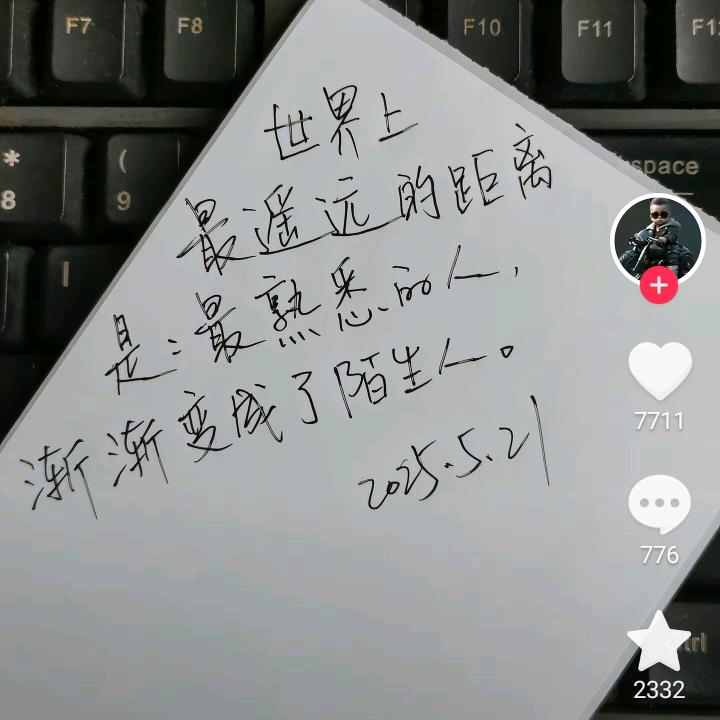 F7
F8
F10
F11
F12
*
8
(
9
space
I
世界上
最遥远的距离
是:最熟悉的人,
渐渐变成了陌生人。
2025.5.21
7711
776
2332